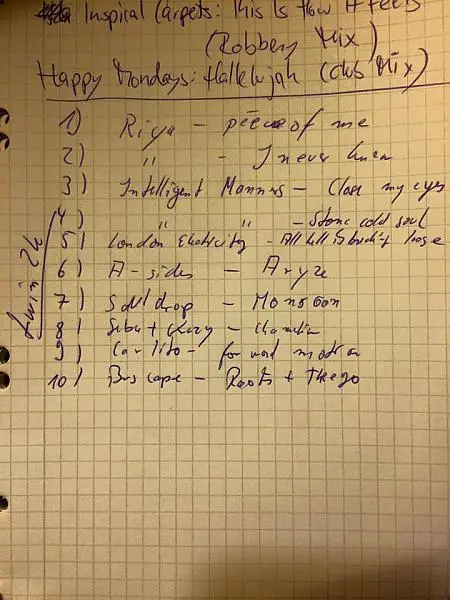 Inspiral Carpets: This Is How It Feels
(Robbery Mix)
Happy Mondays: Hallelujah (Club Mix)
1) Riya - peece of me
2) " - I never knew
3) Intelligent Manners - Close my eyes
4) " " - Stone cold soul
5) London Elektricity - All hell is breaking loose
6) A-sides - Aryze
7) Souldrop - Monsoon
8)
9) Carlito - forward motion
10) - Roots +